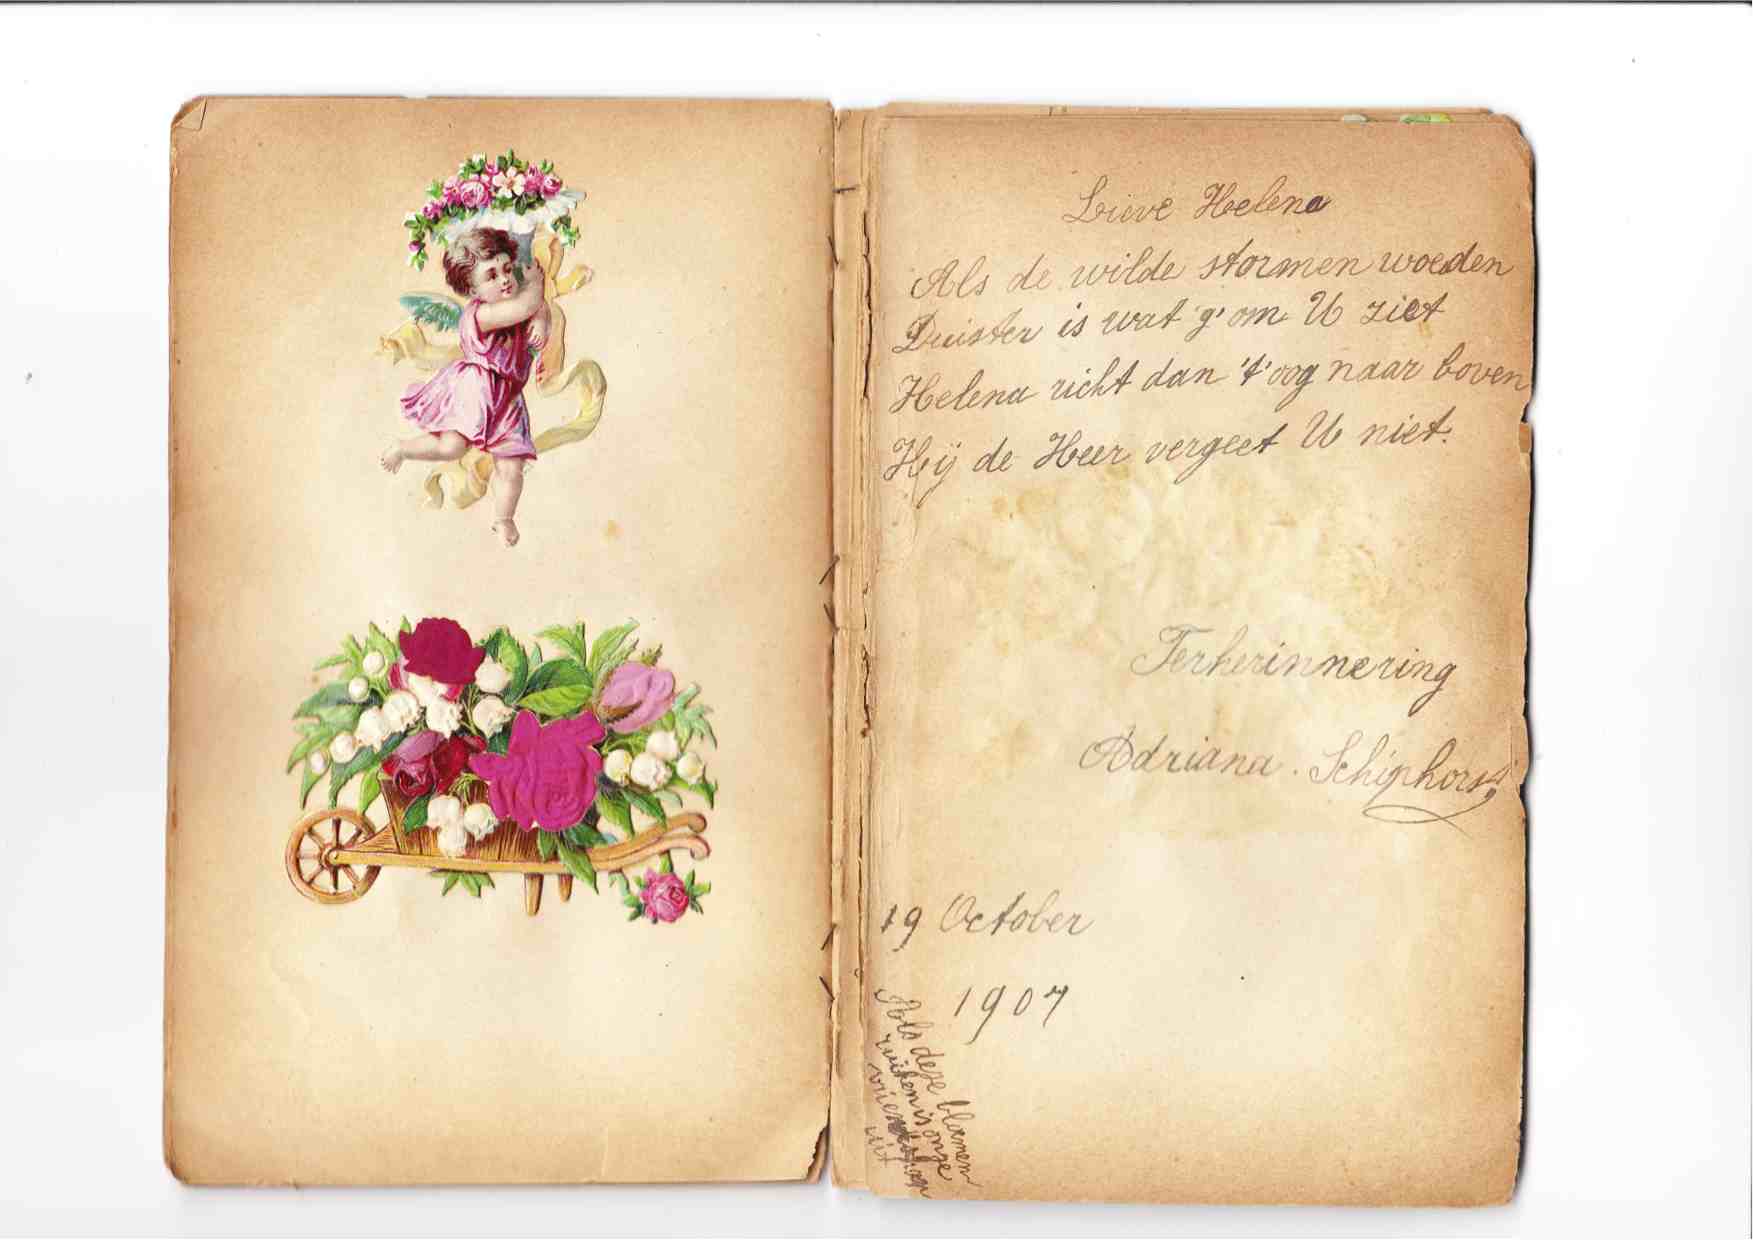 Lieve Helena
Als de wilde stormen woeden
Duister is wat g' om U ziet
Helena richt dan 't' oog naar boven
Hij de Heer vergeet U niet.
Terherinnering
Adriana. Schiphorst
19 October
1907
Als deze bloemen
ruiken is onze
vriendschap
uit